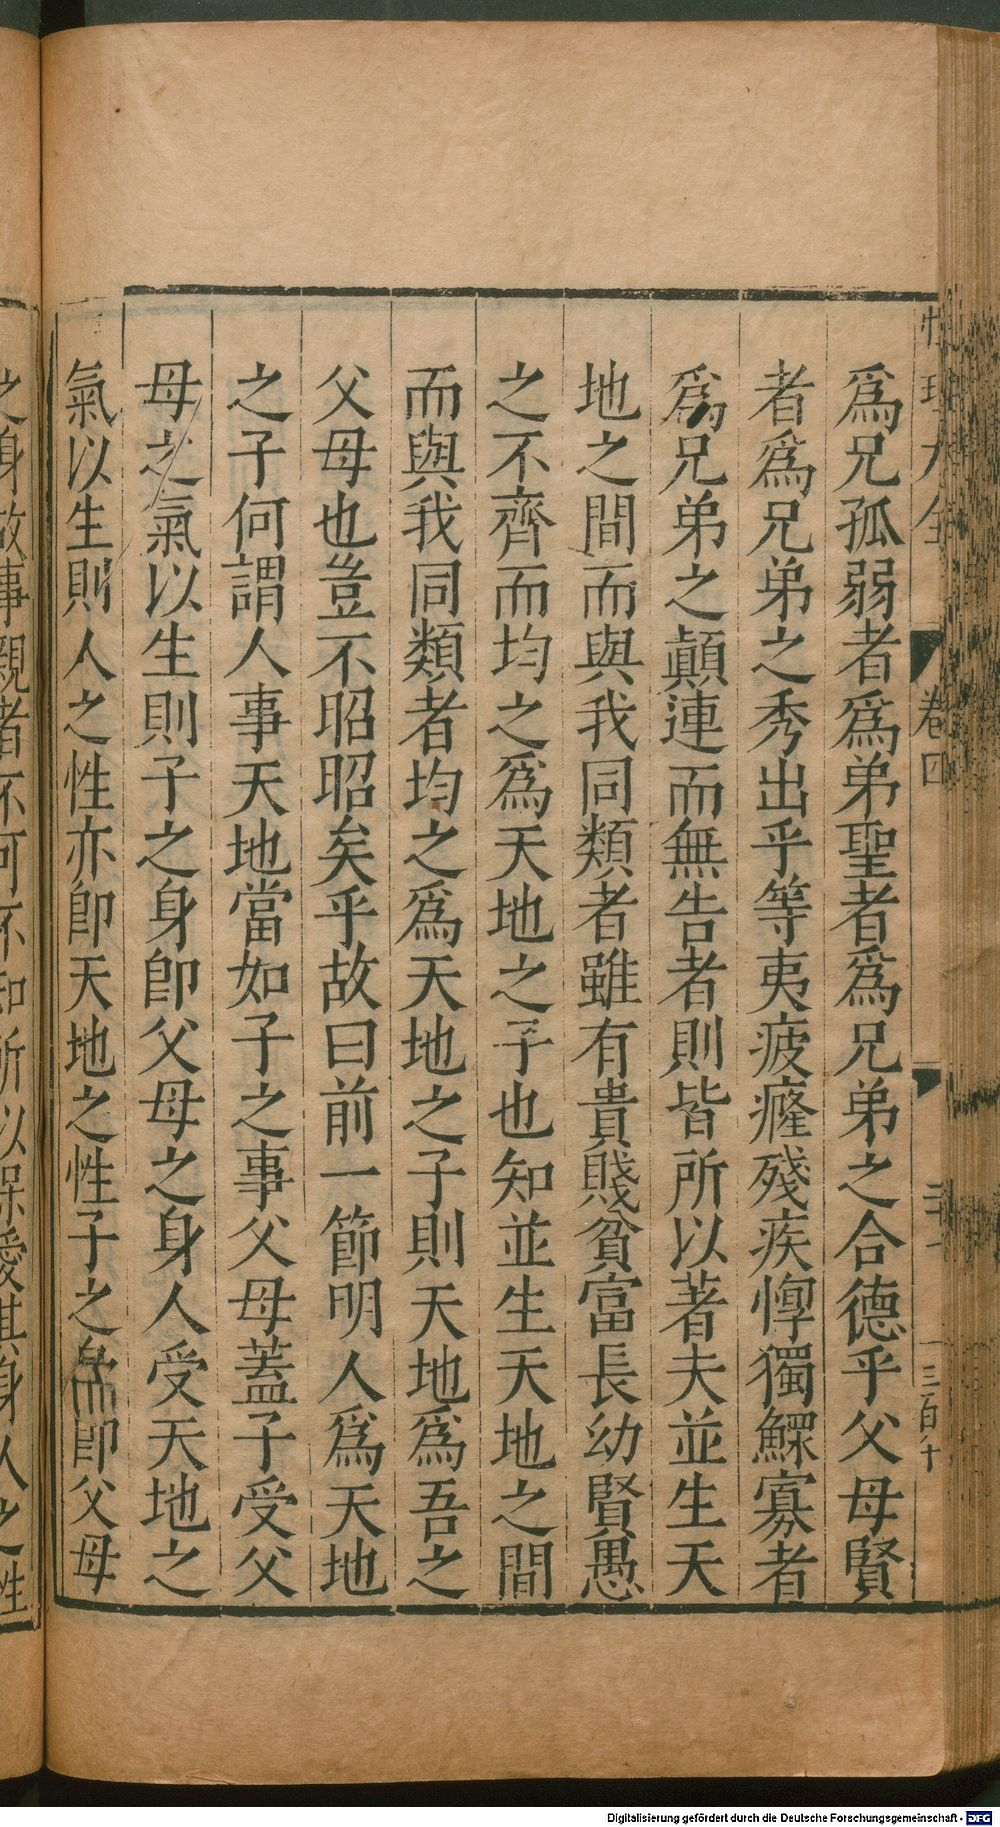 性理大全 卷四 三百千
爲兄孤弱者爲弟聖者爲兄弟之合德乎父母賢
者爲兄弟之秀出乎等夷疲癃殘疾惸獨鰥寡者
爲兄弟之顛連而無告者則皆所以著夫並生天
地之間而與我同類者雖有貴賤貧富長幼賢愚
之不齊而均之爲天地之子也知並生天地之間
而與我同類者均之爲天地之子則天地爲吾之
父母也豈不昭昭矣乎故曰前一節明人爲天地
之子何謂人事天地當如子之事父母蓋子受父
母之氣以生則子之身卽父母之身人受天地之
氣以生則人之性亦卽天地之性子之身卽父母
之身故事親者不可不知所以保愛其身人之性
Digitalisierung gefördert durch die Deutsche Forschungsgemeinschaft - DFG